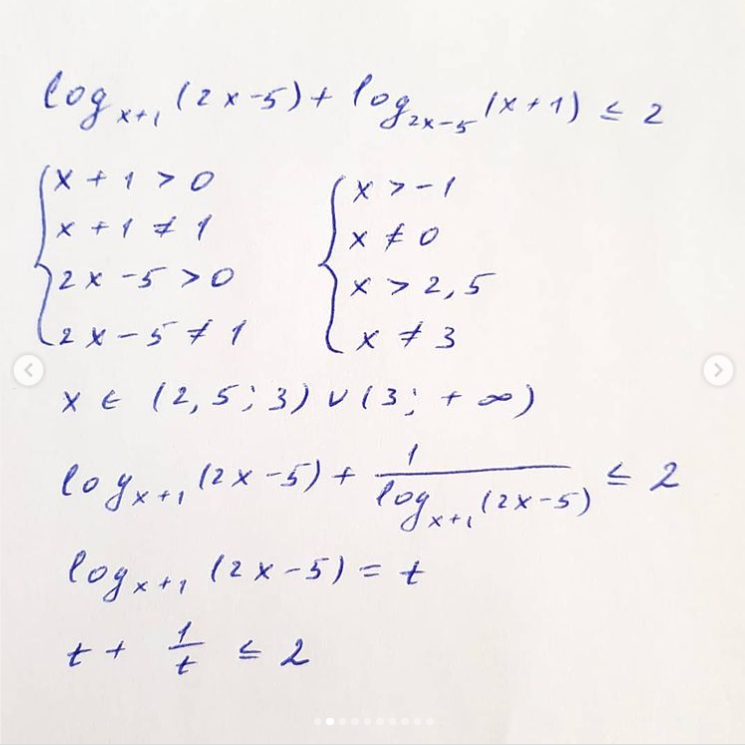 log_{x+1} (2x-5) + log_{2x-5} (x+1) ≤ 2
{ x + 1 > 0
x + 1 ≠ 1
2x - 5 > 0
2x - 5 ≠ 1
{ x > -1
x ≠ 0
x > 2,5
x ≠ 3
x ∈ (2,5; 3) ∪ (3; +∞)
log_{x+1} (2x-5) + 1/log_{x+1} (2x-5) ≤ 2
log_{x+1} (2x-5) = t
t + 1/t ≤ 2